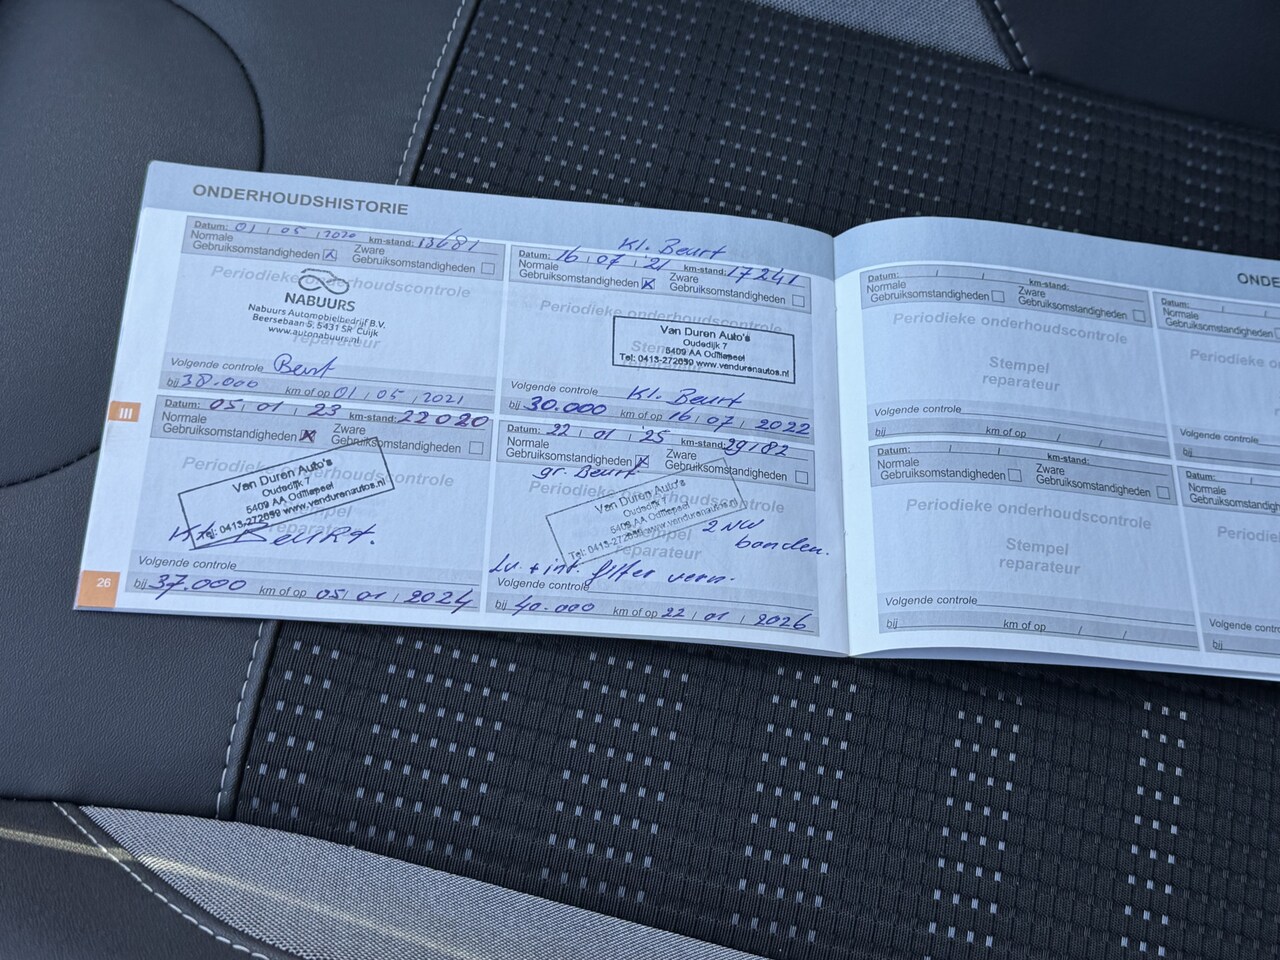 ONDERHOUDSHISTORIE
Datum: 01 / 05 / 2020 km-stand: 13681
Normale Gebruiksomstandigheden X Zware Gebruiksomstandigheden
Periodieke onderhoudscontrole
NABUURS
Nabuurs Automobielbedrijf B.V.
Beersebaan 5, 5431 SR Cuijk
www.autonabuurs.nl
reparateur
Volgende controle Beurt
bij 38.000 km of op 01 / 05 / 2021
Kl. Beurt
Datum: 16 / 07 / '21 km-stand: 17241
Normale Gebruiksomstandigheden X Zware Gebruiksomstandigheden
Periodieke onderhoudscontrole
Van Duren Auto's
Oudedijk 7
5409 AA Odiliapeel
Tel: 0413-272059 www.vandurenautos.nl
Volgende controle Kl. Beurt
bij 30.000 km of op 16 / 07 / 2022
III
Datum: 05 / 01 / 23 km-stand: 22020
Normale Gebruiksomstandigheden X Zware Gebruiksomstandigheden
Periodieke onderhoudscontrole
Van Duren Auto's
Oudedijk 7
5409 AA Odiliapeel
Tel: 0413-272059 www.vandurenautos.nl
reparateur
Kl. Beurt.
Volgende controle
bij 37.000 km of op 05 / 01 / 2024
Datum: 22 / 01 / '25 km-stand: 29182
Normale Gebruiksomstandigheden X Zware Gebruiksomstandigheden
gr. Beurt
Periodieke onderhoudscontrole
Van Duren Auto's
Oudedijk 7
5409 AA Odiliapeel
Tel: 0413-272059 www.vandurenautos.nl
Stempel
reparateur
2 NW
banden.
Lu. + int. filter vern.
Volgende controle
bij 40.000 km of op 22 / 01 / 2026
26
Datum: / / km-stand:
Normale Gebruiksomstandigheden Zware Gebruiksomstandigheden
Periodieke onderhoudscontrole
Stempel
reparateur
Volgende controle
bij km of op / /
Datum: / / km-stand:
Normale Gebruiksomstandigheden Zware Gebruiksomstandigheden
Periodieke onderhoudscontrole
Stempel
reparateur
Volgende controle
bij km of op / /
Datum: / /
Normale
Gebruiksomstandigheden
Periodieke
Volgende controle
bij
Datum: / /
Normale
Gebruiksomstandigheden
Periodieke
Volgende controle
bij